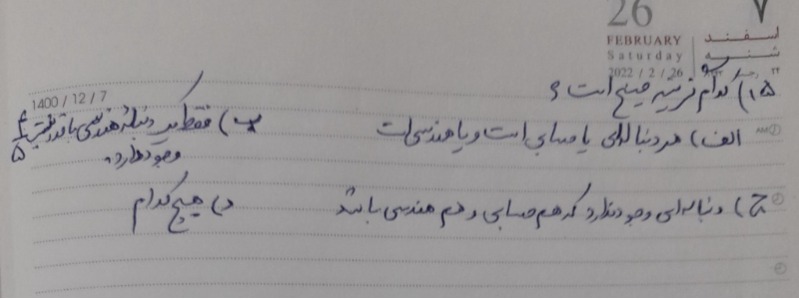 26
FEBRUARY
Saturday
2022 / 2 / 26
۷
اسفند
شنبه
1400 / 12 / 7
۱۵) کدام گزینه صحیح است؟
الف) هر دنباله‌ای یا حسابی است و یا هندسی است
ب) فقط یک دنباله هندسی با قدر نسبت ۴/۵
وجود دارد.
ج) دنباله‌ای وجود ندارد که هم حسابی و هم هندسی باشد
د) هیچ کدام